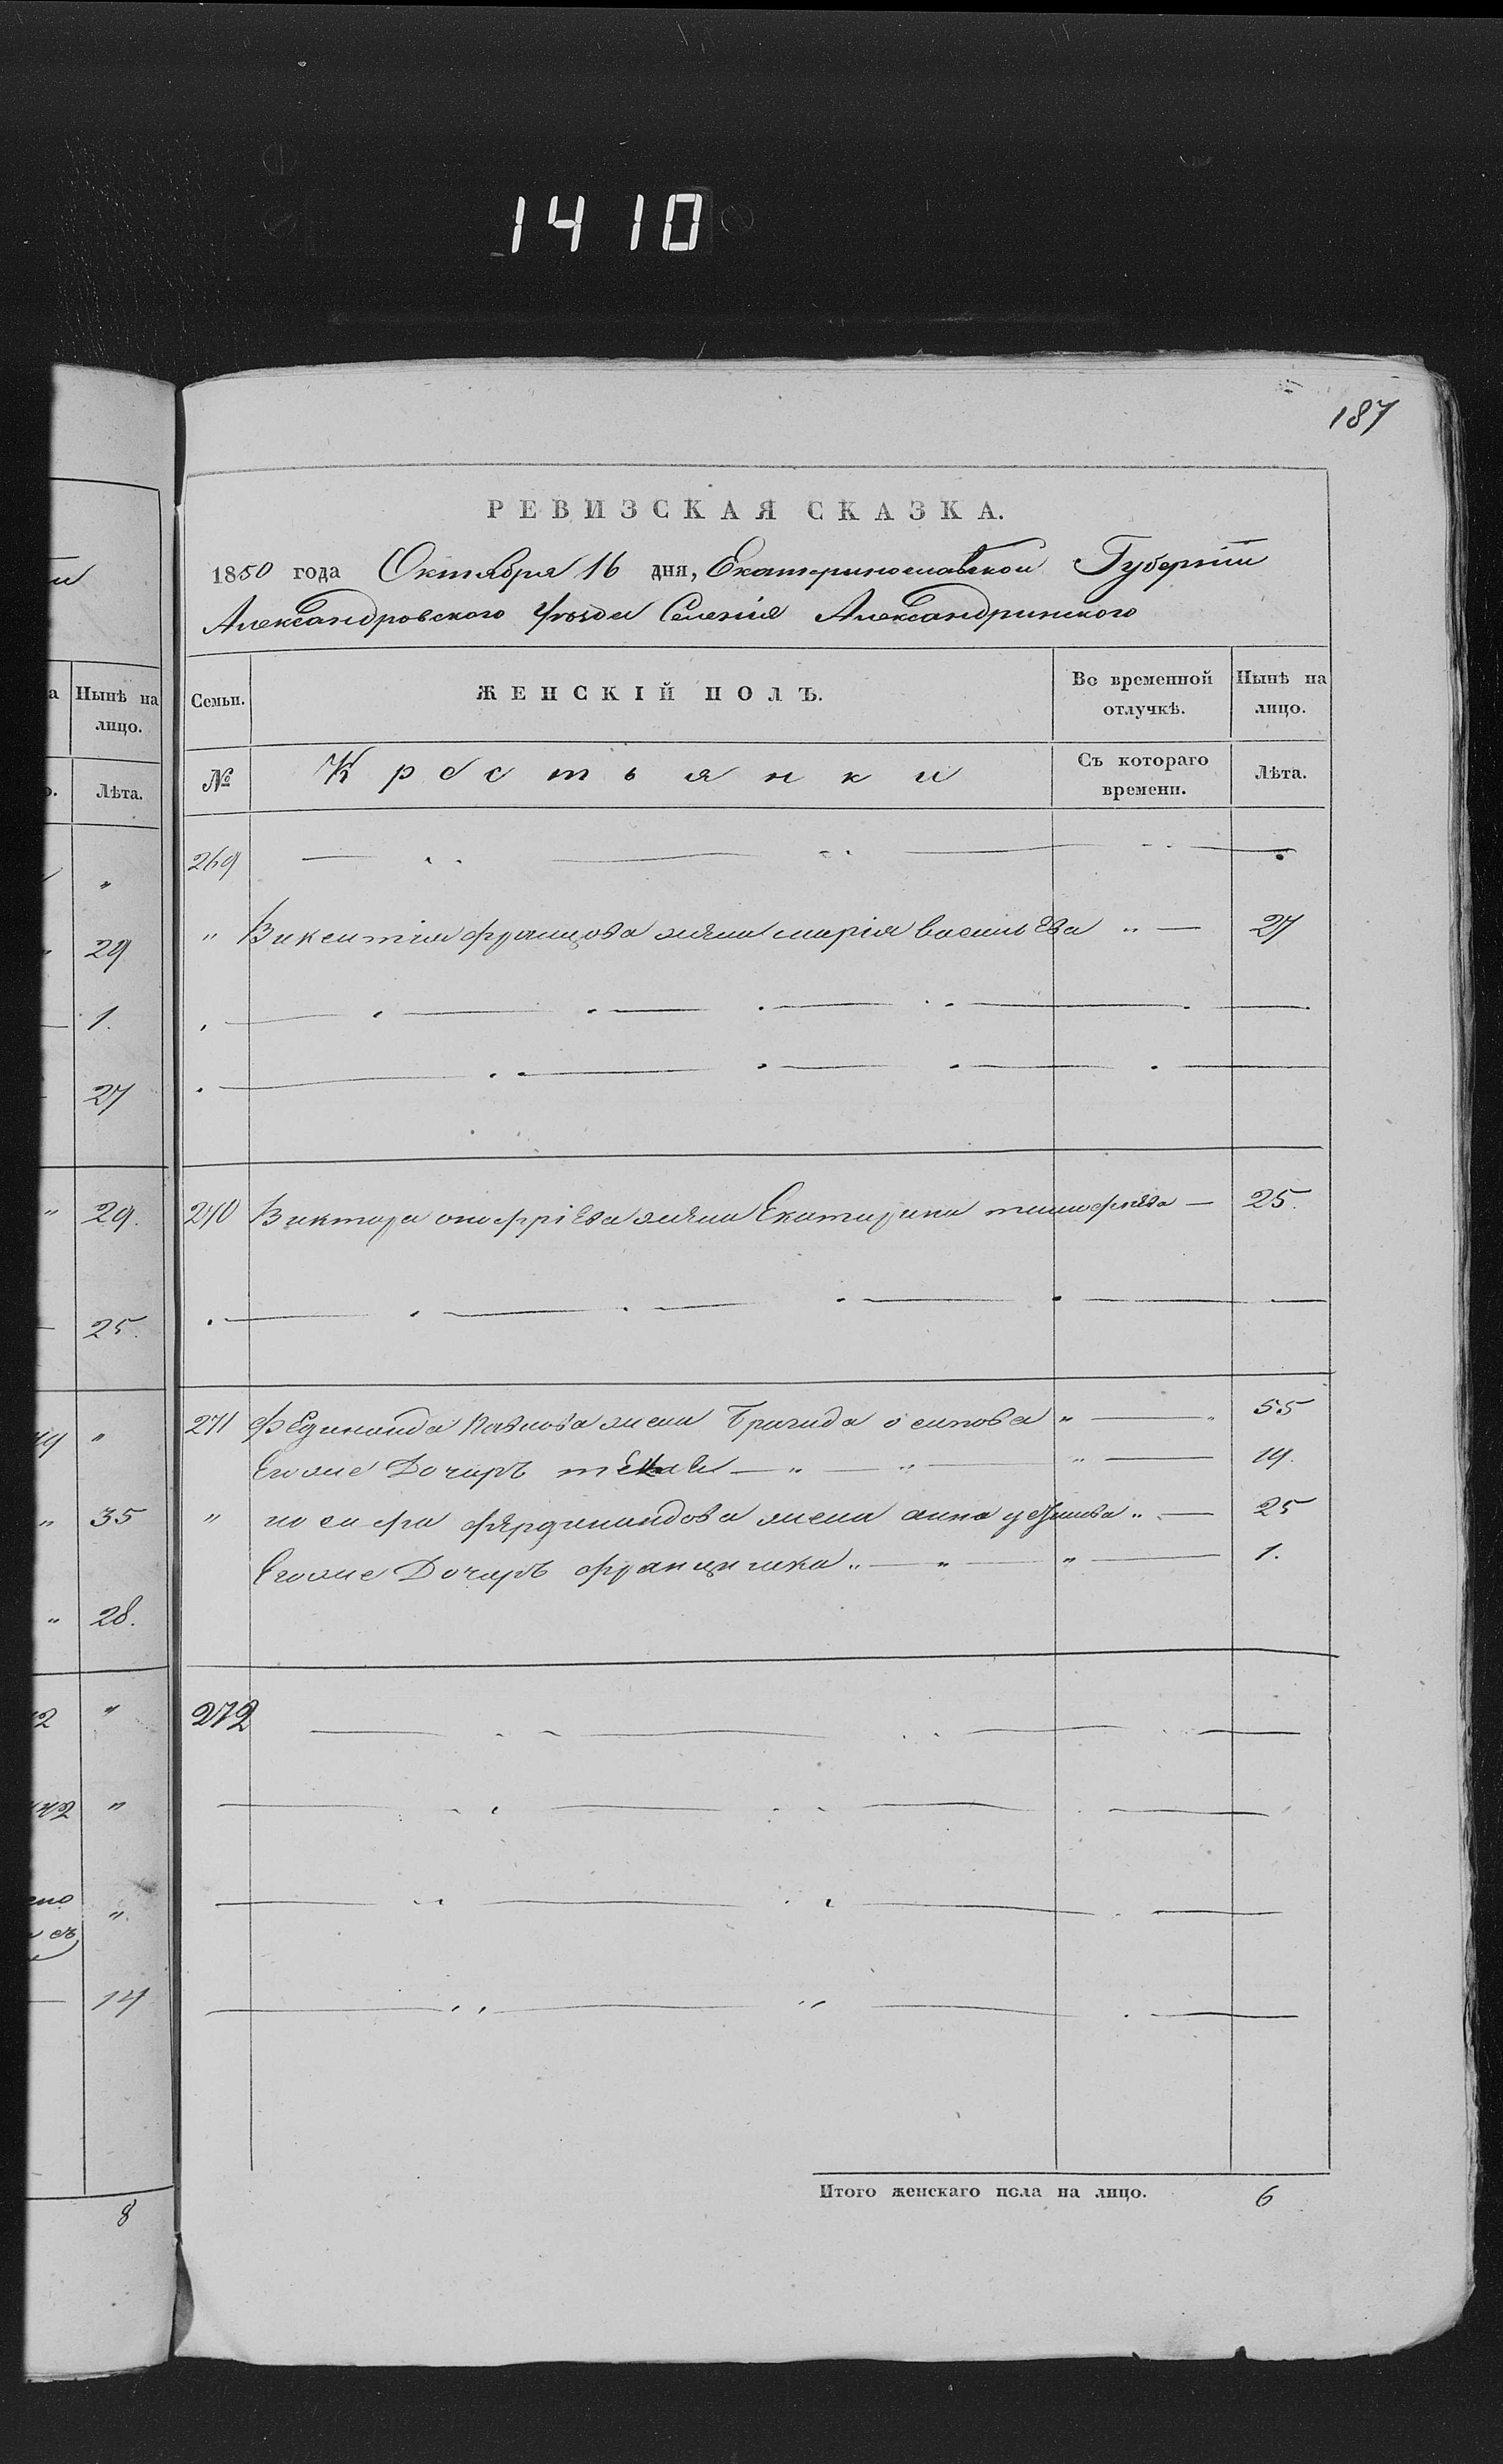 1410
187
РЕВИЗСКАЯ СКАЗКА.
1850 года Октября 16 дня, Екатеринославской Губерніи
Александровского Уѣзда Селенія Александринского
Семьи. ЖЕНСКІЙ ПОЛЪ. Во временной отлучкѣ. Нынѣ на лицо.
№ Крестьянки Съ котораго времени. Лѣта.
269
" Викентія францова жена марія васильева " — 27
270 Виктора онофріева жена Екатирина тимофѣева — 25.
271 Фединанда Павлова жена Бригида осипова " — 55
Егоже Дочирь текле — " — " — 19.
" иосифа фердинандова жена анна " — 25
Егоже Дочирь францишка " — " — " — 1.
272
Итого женскаго пола на лицо. 6
Нынѣ на лицо.
Лѣта.
"
29
1.
27
29.
25.
"
35
28.
"
"
"
14
8